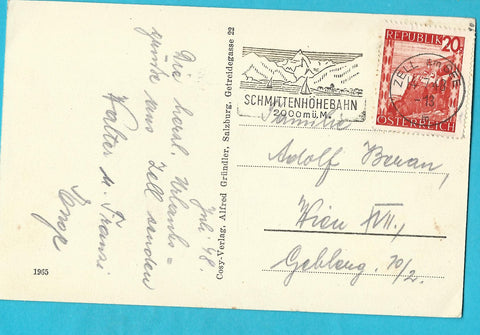 Juli 48.
Die herzl. Urlaubs=
grüße aus Zell senden
Walter u. Franzi
1965
Cosy-Verlag, Alfred Gründler, Salzburg, Getreidegasse 22
SCHMITTENHÖHEBAHN
2000 m ü. M.
REPUBLIK 20
ÖSTERREICH
ZELL AM SEE
Familie
Adolf Beran,
Wien XVII.,
Geblerg. 70/2.